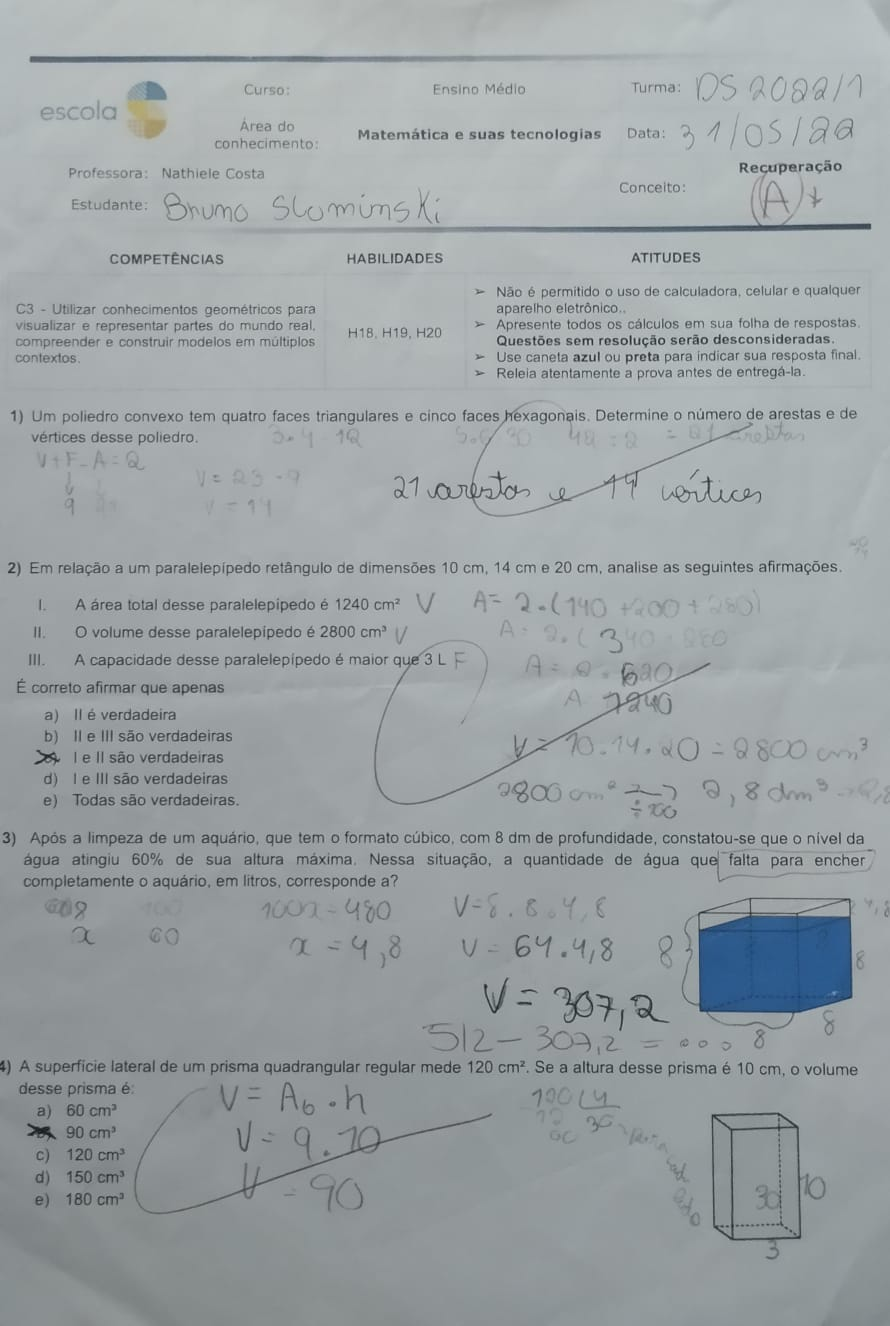 escola
Curso: Ensino Médio Turma: DS 2022/1
Área do conhecimento: Matemática e suas tecnologias Data: 31/05/22
Professora: Nathiele Costa Recuperação
Estudante: Bruno Slominski Conceito: A+
COMPETÊNCIAS HABILIDADES ATITUDES
C3 - Utilizar conhecimentos geométricos para
visualizar e representar partes do mundo real,
compreender e construir modelos em múltiplos
contextos.
H18, H19, H20
➢ Não é permitido o uso de calculadora, celular e qualquer
aparelho eletrônico..
➢ Apresente todos os cálculos em sua folha de respostas.
Questões sem resolução serão desconsideradas.
➢ Use caneta azul ou preta para indicar sua resposta final.
➢ Releia atentamente a prova antes de entregá-la.
1) Um poliedro convexo tem quatro faces triangulares e cinco faces hexagonais. Determine o número de arestas e de
vértices desse poliedro.
3.4 12 5.6 30 42 ÷ 2 = 21 arestas
V+F-A=2
9
V = 23 - 9
V = 14
21 arestas e 14 vértices
2) Em relação a um paralelepípedo retângulo de dimensões 10 cm, 14 cm e 20 cm, analise as seguintes afirmações.
I. A área total desse paralelepípedo é 1240 cm² V A= 2.(140 +200 + 280)
II. O volume desse paralelepípedo é 2800 cm³ V A= 2.(340 280
III. A capacidade desse paralelepípedo é maior que 3 L F A = 2.620
A 1240
É correto afirmar que apenas
a) II é verdadeira
b) II e III são verdadeiras
I e II são verdadeiras
d) I e III são verdadeiras
e) Todas são verdadeiras.
V= 10.14.20 = 2800 cm³
2800 cm² → 2,8 dm³
3) Após a limpeza de um aquário, que tem o formato cúbico, com 8 dm de profundidade, constatou-se que o nível da
água atingiu 60% de sua altura máxima. Nessa situação, a quantidade de água que falta para encher
completamente o aquário, em litros, corresponde a?
8 100 100x = 480 V=8.8.4,8 4,8
x 60 x = 4,8 V = 64.4,8 8 8
V = 307,2
8
512 - 307,2 = ... 8
4) A superfície lateral de um prisma quadrangular regular mede 120 cm². Se a altura desse prisma é 10 cm, o volume
desse prisma é:
a) 60 cm³
90 cm³
c) 120 cm³
d) 150 cm³
e) 180 cm³
V = Ab.h
V = 9.10
V = 90
120 4
12 30
00
30 10
3